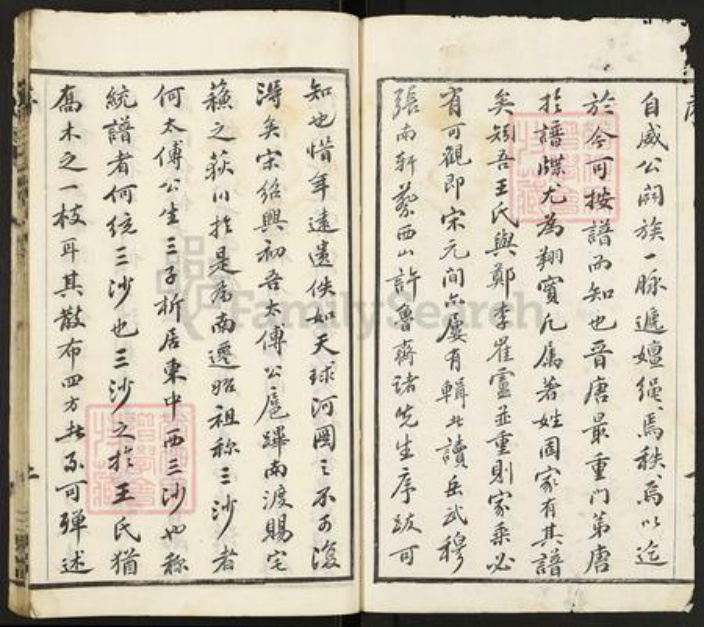 自威公嗣族一脉遞嬗繩焉秩焉以迄
於今可按譜而知也晉唐最重門第唐
於譜牒尤為翔實凡属著姓國家有其譜
矣矧吾王氏與鄭李崔盧並重則家乘必
有可觀即宋元間亦屢有輯此讀岳武穆
張南軒蔡西山許魯齋諸先生序跋可
知也惜年遠遺佚如天球河圖之不可復
得矣宋紹興初吾太傅公扈蹕南渡賜宅
蘇之荻川於是為南遷始祖称三沙者
何太傅公生三子析居東中西三沙也称
統譜者何統三沙也三沙之於王氏猶
喬木之一枝耳其散布四方者不可殫述
FamilySearch